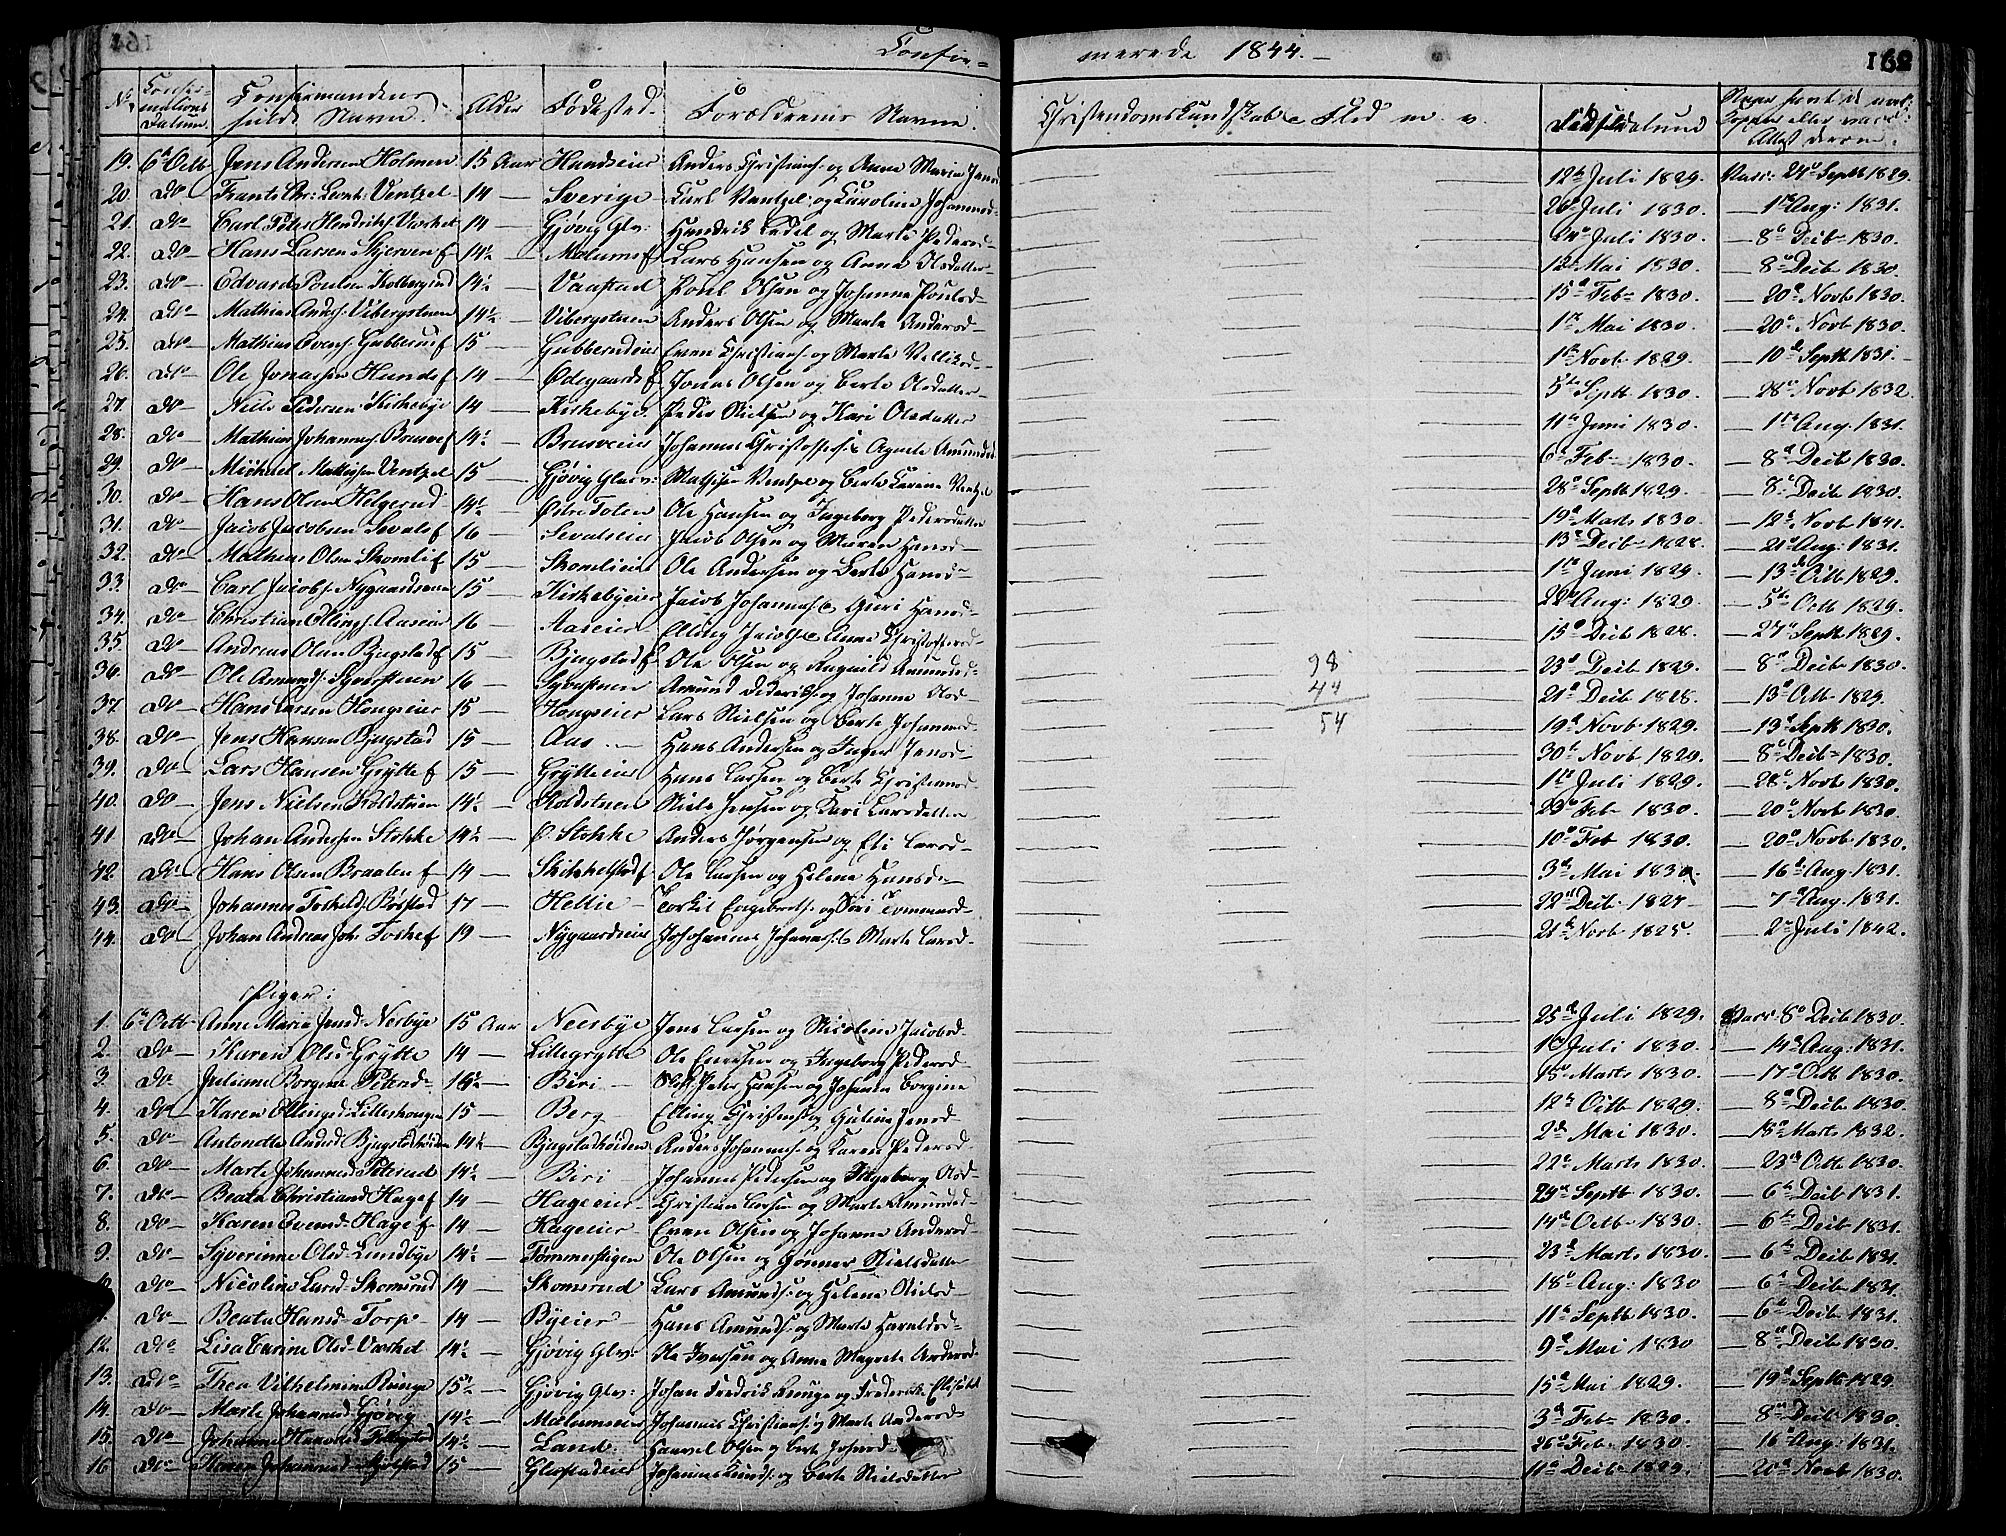 Confir= merede 1844.
162
No Confirmations Datum. Confirmandens fulde Navn. Alder Fødested. Forældrenes Navne. Christendomskundskab Flid m. v. Fødselsdatum
19. 6te Octb Jens Andersen Holmen 15 Aar Hundseier Anders Christians: og Anne Maria Jensd 12te Juli 1829. Vacc: 24de Septb 1829.
20. do Frants Chr: Ventzel 14 — Sverige Carl Ventzel og Karoline Johannesd 20de Juli 1830. — 1ste Aug: 1831.
21. do Carl Hendriks: Værket 14 — Gjøvig Glv: Hendrik og Marte Pedersd 24de Juli 1830. — 8de Decb 1830.
22. do Hans Larsen Skjerven f 14½ — Lars Hansen og Anne Olsdatter 12te Mai 1830. — 8de Decb 1830.
23. do Edvard Poulsen Kolbergsud 14½ Vaastad Poul Olsen og Johanne Poulsd 15de Feb 1830. — 20de Novb 1830.
24. do Mathias Anders: Vibergstuen 14½ — Vibergstuen Anders Olsen og Marte Andersd 1ste Mai 1830. — 20de Novb 1830.
25. do Mathias Evens: 15 — Even Christians: og Marte 1ste Novb 1829. — 10de Septb 1831.
26. do Ole Jonassen Hunde f 14 — Ødegaards f Jonas Olsen og Berte Olsdatter 5te Septb 1830. — 28de Novb 1832.
27. do Niels Pedersen Kirkebye 14 — Kirkebye Peder Nielsen og Kari Olsdatter 11te Juni 1830. — 1ste Aug. 1831.
28. do Mathias Johannes: Brusve f 14½ — Brusveeier Johannes Christoffers: Agnete Amundsd 6te Feb 1830. — 8de Decb 1830.
29. do Michael Mathisen Ventzel 15 — Gjøvig Glv: Mathisen Ventzel og Berte Karine Ventzel 28de Septb 1829. — 8de Decb 1830.
30. do Hans Olsen Helgerud 14½ — Østre Toten Ole Hansen og Ingeborg Pedersdatter 19de Marts 1830. — 12te Novb 1841.
31. do Jacob Jacobsen Sevale f 16 — Sevaleeier Jacob Olsen og Maren Hansd 13de Decb 1828. — 21de Aug: 1831.
32. do Mathias Olsen Skomli f 15 — Skomlieier Ole Andersen og Berte Hansd 1ste Juni 1829. — 13de Octb 1829.
33. do Carl Jacobs: Nygaardseien 15 — Kirkebyeier Jacob Johannes: Guri Hansd 22de Aug: 1829. — 5te Octb 1829.
34. do Christian Ellings: Aaseier 16 — Aaseier Elling Jacobs: Anne Christoffersd 15de Decb 1828. — 27de Septb 1829.
35. do Andreas Olsen Bjugstad f 15 — Bjugstad f Ole Olsen og Ragnild Amundsd 23de Decb 1829. — 8de Decb 1830.
36. do Ole Amunds: Syverstuen 16 — Syverstuen Amund Diderichs: og Johanne Olsd 21de Decb 1828. — 13de Octb 1829.
98
44
54
37. do Hans Larsen Hongseier 15 — Hongseier Lars Nielsen og Berte Johannesd 19de Novb 1829. — 13de Septb 1830.
38. do Jens Hansen Bjugstad 15 — Aas — Hans Andersen og Inger Jensd 30te Novb 1829. — 8de Decb 1830.
39. do Lars Hansen Grytte f 15 — Grytteeier Hans Larsen og Berte Christiansd 1ste Juli 1829. — 28de Novb 1830.
40. do Jens Nielsen Koldstuen 14½ — Koldstuen Niels Jensen og Kari Larsdatter 23de Feb 1830. — 20de Novb 1830.
41. do Johan Andersen Stokke 14½ — Ø. Stokke Anders Jørgensen og Eli Larsd 10de Feb 1830. — 20de Novb 1830.
42. do Hans Olsen Braaten f 14 — Skikkelstad f Ole Larsen og Helene Hansd 3de Mai 1830. — 16de Aug. 1831.
43. do Johannes Torkelds: Børstad 17 — Hellie — Torkil Engebrets: og Siri Tommasd 22de Decb 1827 — 7de Aug. 1831.
44. do Johan Andreas Joh: f 19 — Nygaardseier Johannes Johannes: Marte Larsd 21de Novb 1825. — 2de Juli 1842.
Piger:
1. 6te Octb Anne Maria Jensd Nerbye 15 Aar Neerbye Jens Larsen og Nicoline Jacobsd 25de Juli 1829. Vacc 8de Decb 1830.
2. do Karen Olsd Grytte 14 — Lillegrytte Ole Evensen og Ingeborg Pedersd 1ste Juli 1830. — 14de Aug. 1831.
3. do Juliane Borgine 14½ — Biri — Peter Hansen og Johanne Borgine 15de Marts 1830. — 17de Octb 1830.
4. do Karen Ellingsd Lillehongen 15 — Berg — Elling Christens: og Guline Jensd 12te Octb 1829. — 8de Decb 1830.
5. do Antonette Andersd Bjugstadhøiden 14½ — Bjugstadhøiden Anders Johannes: og Karen Pedersd 2de Mai 1830. — 18de Marts 1832.
6. do Marte Johannesd 14½ — Biri — Johannes Pedersen og Ingeborg Olsd 22de Marts 1830. — 23de Octb 1830.
7. do Beata Christiansd Hage f 14 — Hageeier Christian Larsen og Marte Amundsd 29de Septb 1830. — 6te Decb 1831.
8. do Karen Evensd Hage f 14 — Hageeier Even Olsen og Johanne Andersd 14de Octb 1830. — 6te Decb 1831.
9. do Syverinne Olsd Lundbye 14½ — Tømmerstigen Ole Olsen og Gønner Nielsdatter 23de Marts 1830. — 6te Decb 1831.
do Nicoline Larsd Skomsrud 14 — Skomsrud Lars Amunds: og Helene Nielsd 18de Aug: 1830 — 6te Decb 1831.
do Beata Hansd Torp 14 — Byeier Hans Amunds: og Marte Haraldsd 11te Septb 1830. — 6te Decb 1831.
12. do Lisa Carine Olsd Værket 14½ — Gjøvig Glv: Ole Iversen og Anne Magrete Andersd 9de Mai 1830 — 8de Decb 1830.
13. do Thea Vilhelmine Runge 15½ — Gjøvig Glv: Johan Fredrik Runge og Frederikke 15de Mai 1829. — 19de Septb 1829.
14. do Marte Johannesd Gjøvig 14½ — Johannes Christians: og Marte Andersd 3de Feb 1830. — 8de Decb 1830.
15. do Johanne 14½ — Land. Olsen og Berte 26de Feb 1830. — 16de Aug: 1831.
16. do Karen Johannesd 15 — Johannes og Berte Nielsdatter 11te Decb 1829. — 20de Novb 1830.